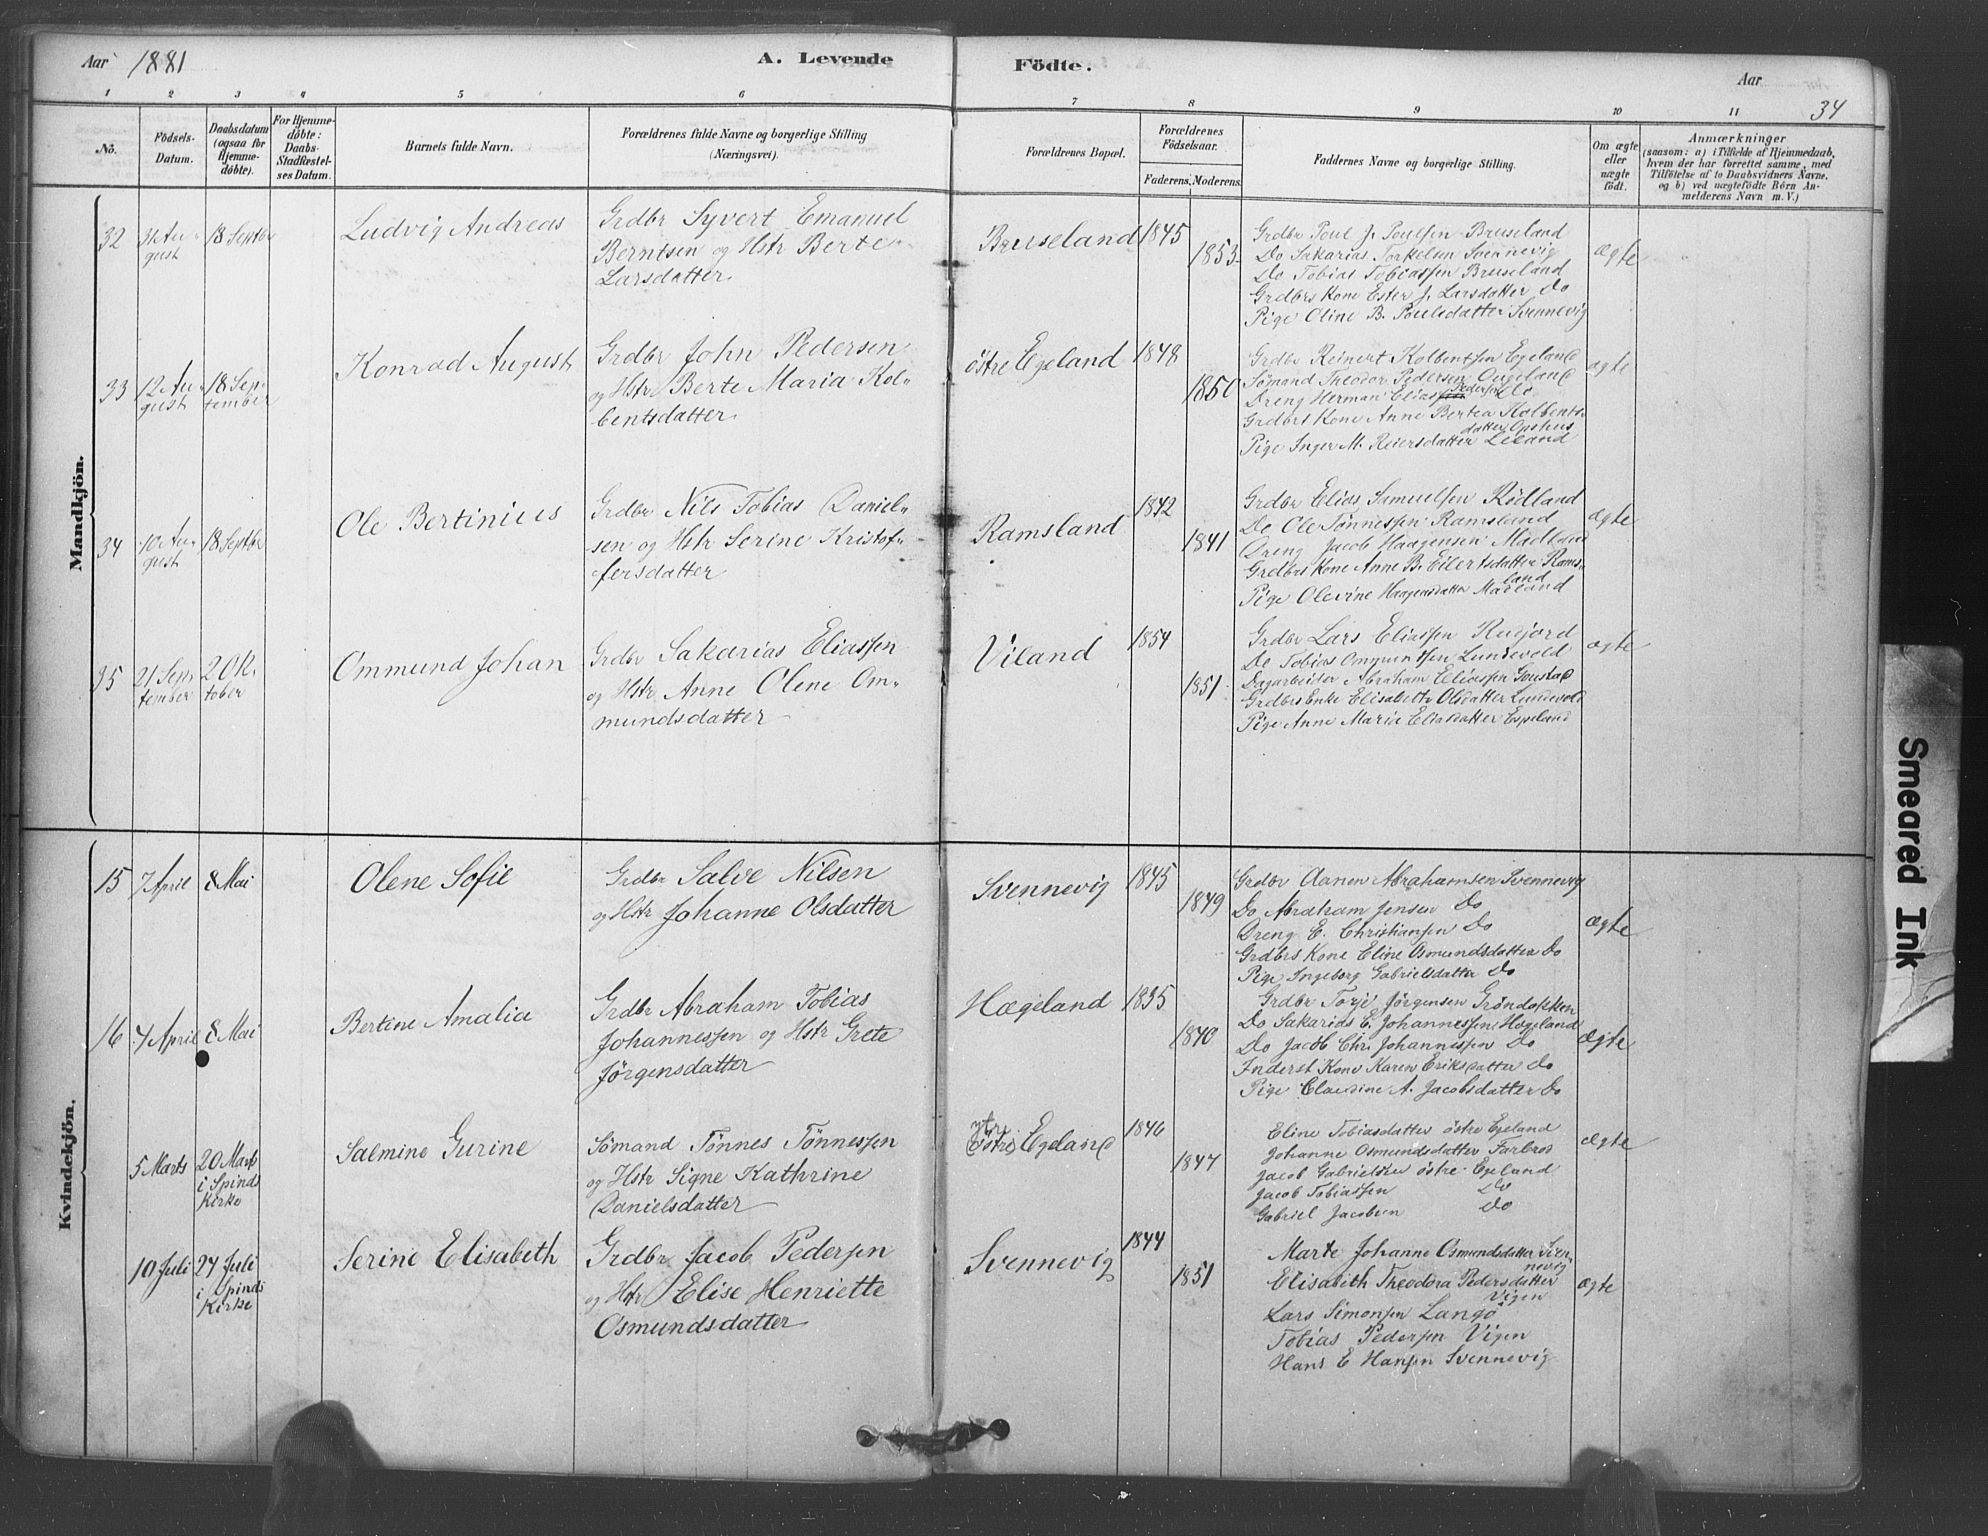 Aar 1881
A. Levende Födte.
Aar
34
1 2 3 4 5 6 7 8 9 10 11
No.
Födsels-
Datum.
Daabsdatum
(ogsaa for
Hjemme-
döbte).
For Hjemme-
döbte:
Daabs-
Stadfæstel-
ses Datum.
Barnets fulde Navn.
Forældrenes fulde Navne og borgerlige Stilling
(Næringsvei).
Forældrenes Bopæl.
Forældrenes
Födselsaar.
Faderens. Moderens.
Faddernes Navne og borgerlige Stilling.
Om ægte
eller
uægte
födt.
Anmærkninger
(saasom: a) i Tilfælde af Hjemmedaab,
hvem der har forrettet samme, med
Tilföielse af to Daabsvidners Navne,
og b) ved uægtefödte Börn An-
melderens Navn m. V.)
Mandkjön.
32
31 Au-
gust
18 Septbr
Ludvig Andreas
Grdbr Syvert Emanuel
Berntsen og Hstr Berte
Larsdatter
Bruseland
1845
1853
Grdbr Poul J. Poulsen Bruseland
Do Sakarias Torkelsen Svennevig
Do Tobias Tobiassen Bruseland
Grdbrs Kone Ester J. Larsdatter Do
Pige Oline B. Poulsdatter Svennevig
ægte
33
12 Au-
gust
18 Sep-
tember
Konrad August
Grdbr John Pedersen
og Hstr Berte Maria Kol-
bentsdatter
östre Egeland
1848
1850
Grdbr Reinert Kolbentsen Egeland
Sømand Theodor Pedersen Egeland
Dreng Herman Elias Pedersen Do
Grdbrs Kone Anne Bertea Kolbents-
datter Opshus
Pige Inger M. Reiersdatter Leland
ægte
34
10 Au-
gust
18 Septbr
Ole Bertinius
Grdbr Nils Tobias Daniel-
sen og Hstr Serine Kristof-
fersdatter
Ramsland
1842
1841
Grdbr Elias Samuelsen Rødland
Do Ole Tønnessen Ramsland
Dreng Jacob Haagensen Madland
Grdbrs Kone Anne B. Eilertsdatter Rams-
land
Pige Olevine Haagensdatter Madland
ægte
35
21 Sep-
tember
2 Ok-
tober
Ommund Johan
Grdbr Sakarias Eliassen
og Hstr Anne Olene Om-
mundsdatter
Viland
1854
1851
Grdbr Lars Eliassen Rudjord
Do Tobias Ommundsen Lundevold
Dagarbeider Abraham Eliassen
Grdbrs Enke Elisabeth Olsdatter Lundevold
Pige Anne Marie Eliasdatter Espeland
ægte
Kvindekjön.
15
7 April
8 Mai
Olene Sofie
Grdbr Salve Nilsen
og Hstr Johanne Olsdatter
Svennevig
1845
1849
Grdbr Aanen Abrahamsen Svennevig
Do Abraham Jensen Do
Dreng E. Christiansen Do
Grdbrs Kone Eline Osmundsdatter Do
Pige Ingeborg Gabrielsdatter Do
ægte
16
4 April
8 Mai
Bertine Amalia
Grdbr Abraham Tobias
Johannessen og Hstr Grete
Jörgensdatter
Hægeland
1835
1840
Grdbr Torje Jörgensen Gröndokken
Do Sakarias E. Johannessen Hægeland
Do Jacob Chr. Johannessen Do
Inderst Kone Karen Eriksdatter Do
Pige Claudine A. Jacobsdatter Do
ægte
5 Marts
20 Marts
i Spinds
Kirke
Salmine Gurine
Sømand Tønnes Tønnessen
og Hstr Signe Kathrine
Danielsdatter
ytre
(östre) Egeland
1846
1847
Eline Tobiasdatter östre Egeland
Johanne Osmundsdatter Farbrot
Jacob Gabrielsen östre Egeland
Jacob Tobiassen Do
Gabriel Jacobsen Do
ægte
10 Juli
24 Juli
i Spinds
Kirke
Serine Elisabeth
Grdbr Jacob Pedersen
og Hstr Elise Henriette
Osmundsdatter
Svennevig
1844
1851
Marte Johanne Osmundsdatter Sven-
nevig
Elisabeth Theodora Pedersdatter
Vigen
Lars Simonsen Langö
Tobias Pedersen Vigen
Hans E Hansen Svennevig
ægte
Smeared Ink